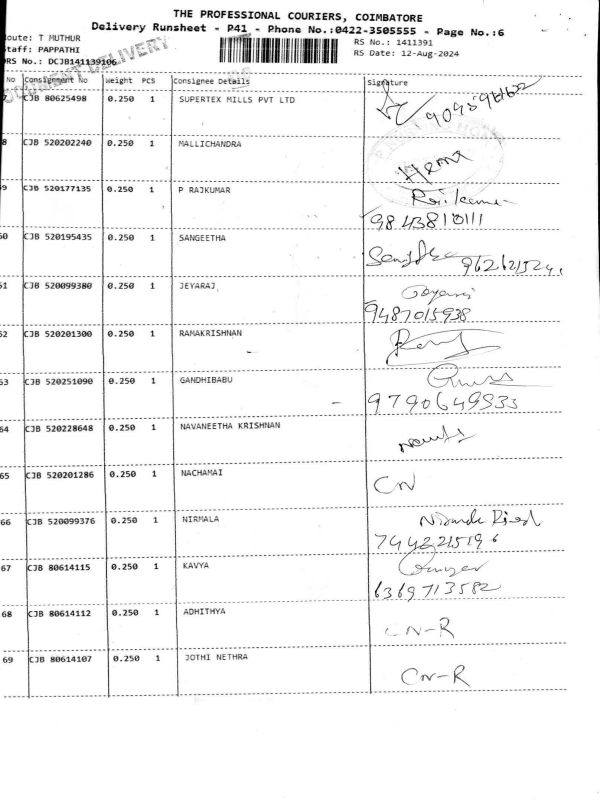 THE PROFESSIONAL COURIERS, COIMBATORE
Delivery Runsheet - P41 - Phone No.:0422-3505555 - Page No.:6
oute: T MUTHUR
RS No.: 1411391
taff: PAPPATHI
RS Date: 12-Aug-2024
DRS No.: DCJB141139106
DOCUMENT DELIVERY
No Consignment No Weight PCS Consignee Details Signature
7 CJB 80625498 0.250 1 SUPERTEX MILLS PVT LTD
8 CJB 520202240 0.250 1 MALLICHANDRA Hema
59 CJB 520177135 0.250 1 P RAJKUMAR Rajkumar
9843810111
60 CJB 520195435 0.250 1 SANGEETHA
61 CJB 520099380 0.250 1 JEYARAJ
9487015938
62 CJB 520201300 0.250 1 RAMAKRISHNAN
63 CJB 520251090 0.250 1 GANDHIBABU
9790649533
64 CJB 520228648 0.250 1 NAVANEETHA KRISHNAN
65 CJB 520201286 0.250 1 NACHAMAI CN
66 CJB 520099376 0.250 1 NIRMALA
7442215196
67 CJB 80614115 0.250 1 KAVYA
6369713582
68 CJB 80614112 0.250 1 ADHITHYA CN-R
69 CJB 80614107 0.250 1 JOTHI NETHRA CN-R